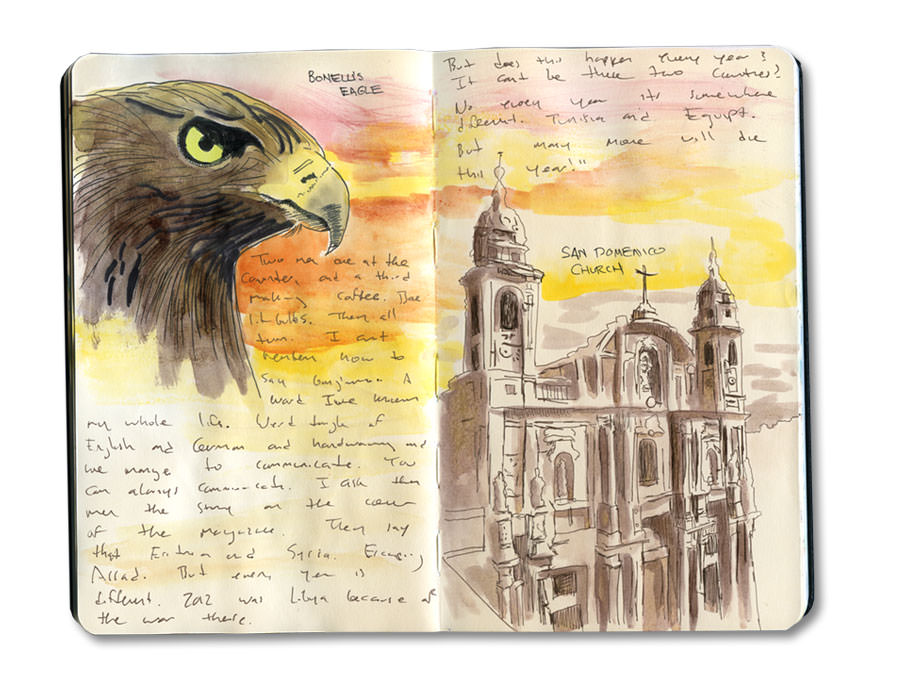 BONELLI'S
EAGLE
Two men are at the
counter, and a third
making coffee. Blue
They all
turn. I can't
remember how to
say buongiorno. A
word I've known
my whole life. Word jumble of
English and German and handwaving and
we manage to communicate. You
can always communicate. I ask the
men the story on the cover
of the magazine. They say
that Eritrea and Syria. Escaping
Assad. But every year is
different. 2012 was Libya because of
the war there.
But does this happen every year?
It can't be these two countries?
No every year it's somewhere
different. Tunisia and Egypt.
But many more will die
this year!"
SAN DOMENICO
CHURCH